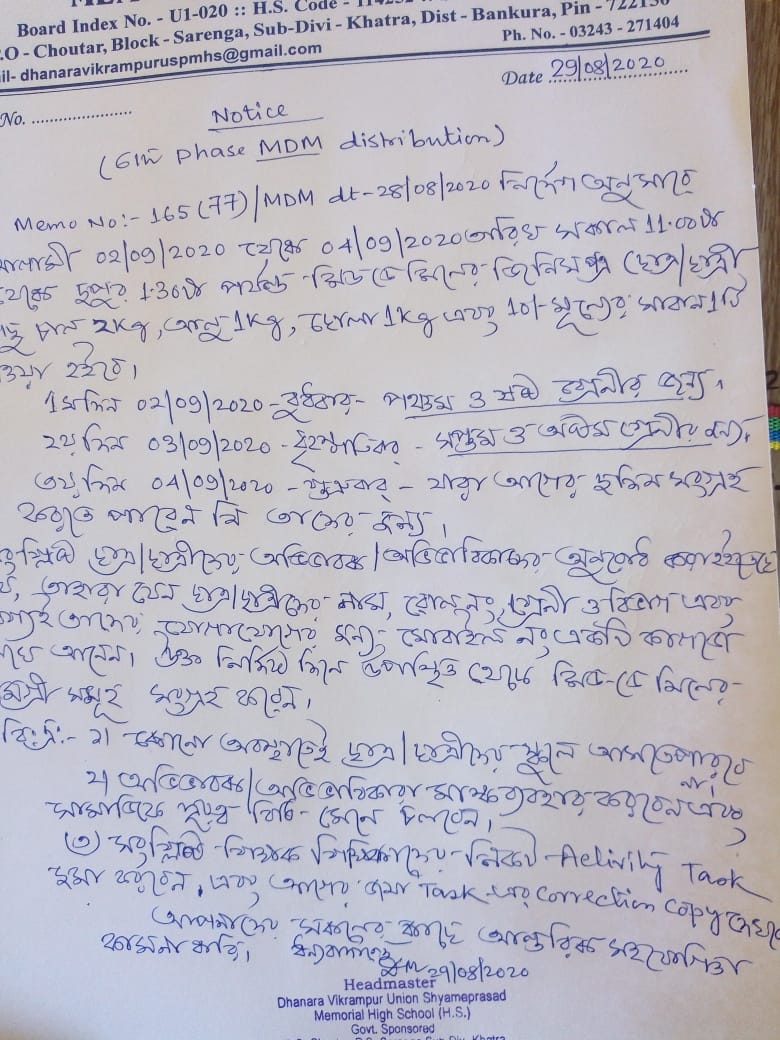 Board Index No. - U1-020 :: H.S. Code -
.O - Choutar, Block - Sarenga, Sub-Divi - Khatra, Dist - Bankura, Pin - 722150
il- dhanaravikrampuruspmhs@gmail.com
Ph. No. - 03243 - 271404
Date 29/08/2020
No.
Notice
(6ষ্ঠ phase MDM distribution)
Memo No:- 165(77)/MDM dt-28/08/2020 নির্দেশ অনুসারে
02/09/2020 থেকে 04/09/2020 তারিখ সকাল 11.00টা
থেকে দুপুর 1.30টা পর্যন্ত মিড ডে মিলের জিনিসপত্র (ছাত্র/ছাত্রী
চাল 2Kg, আলু 1Kg, ছোলা 1Kg এবং 10/- মূল্যের সাবান 1টি
হইবে।
1ম দিন 02/09/2020 - বুধবার - পঞ্চম ও ষষ্ঠ শ্রেণীর জন্য,
২য় দিন 03/09/2020 - বৃহস্পতিবার - সপ্তম ও অষ্টম শ্রেণীর জন্য,
৩য় দিন 04/09/2020 - শুক্রবার - যারা আগের দুদিন সংগ্রহ
করতে পারেন নি তাদের জন্য।
ছাত্র/ছাত্রীদের অভিভাবক/অভিভাবিকাদের অনুরোধ করা হইতেছে
তাহারা যেন ছাত্র/ছাত্রীদের নাম, রোল নং, শ্রেণী ও বিভাগ এবং
তাদের যোগাযোগের জন্য মোবাইল নং একটি কাগজে
আনেন। উক্ত নির্দিষ্ট দিনে উপস্থিত থেকে মিড-ডে মিলের
সমূহ সংগ্রহ করেন।
বিঃদ্রঃ- ১) কোনো অবস্থাতেই ছাত্র/ছাত্রীদের স্কুলে আসতে পারবে
না।
২) অভিভাবক/অভিভাবিকারা মাস্ক ব্যবহার করবেন এবং
সামাজিক দূরত্ব বিধি মেনে চলবেন।
(৩) সংশ্লিষ্ট শিক্ষক শিক্ষিকাদের নিকট Activity Task
জমা করবেন, এবং আগের জমা Task এর correction copy
আপনাদের সকলের কাছে আন্তরিক সহযোগিতা
কামনা করি। ধন্যবাদান্তে
29/08/2020
Headmaster
Dhanara Vikrampur Union Shyamaprasad
Memorial High School (H.S.)
Govt. Sponsored